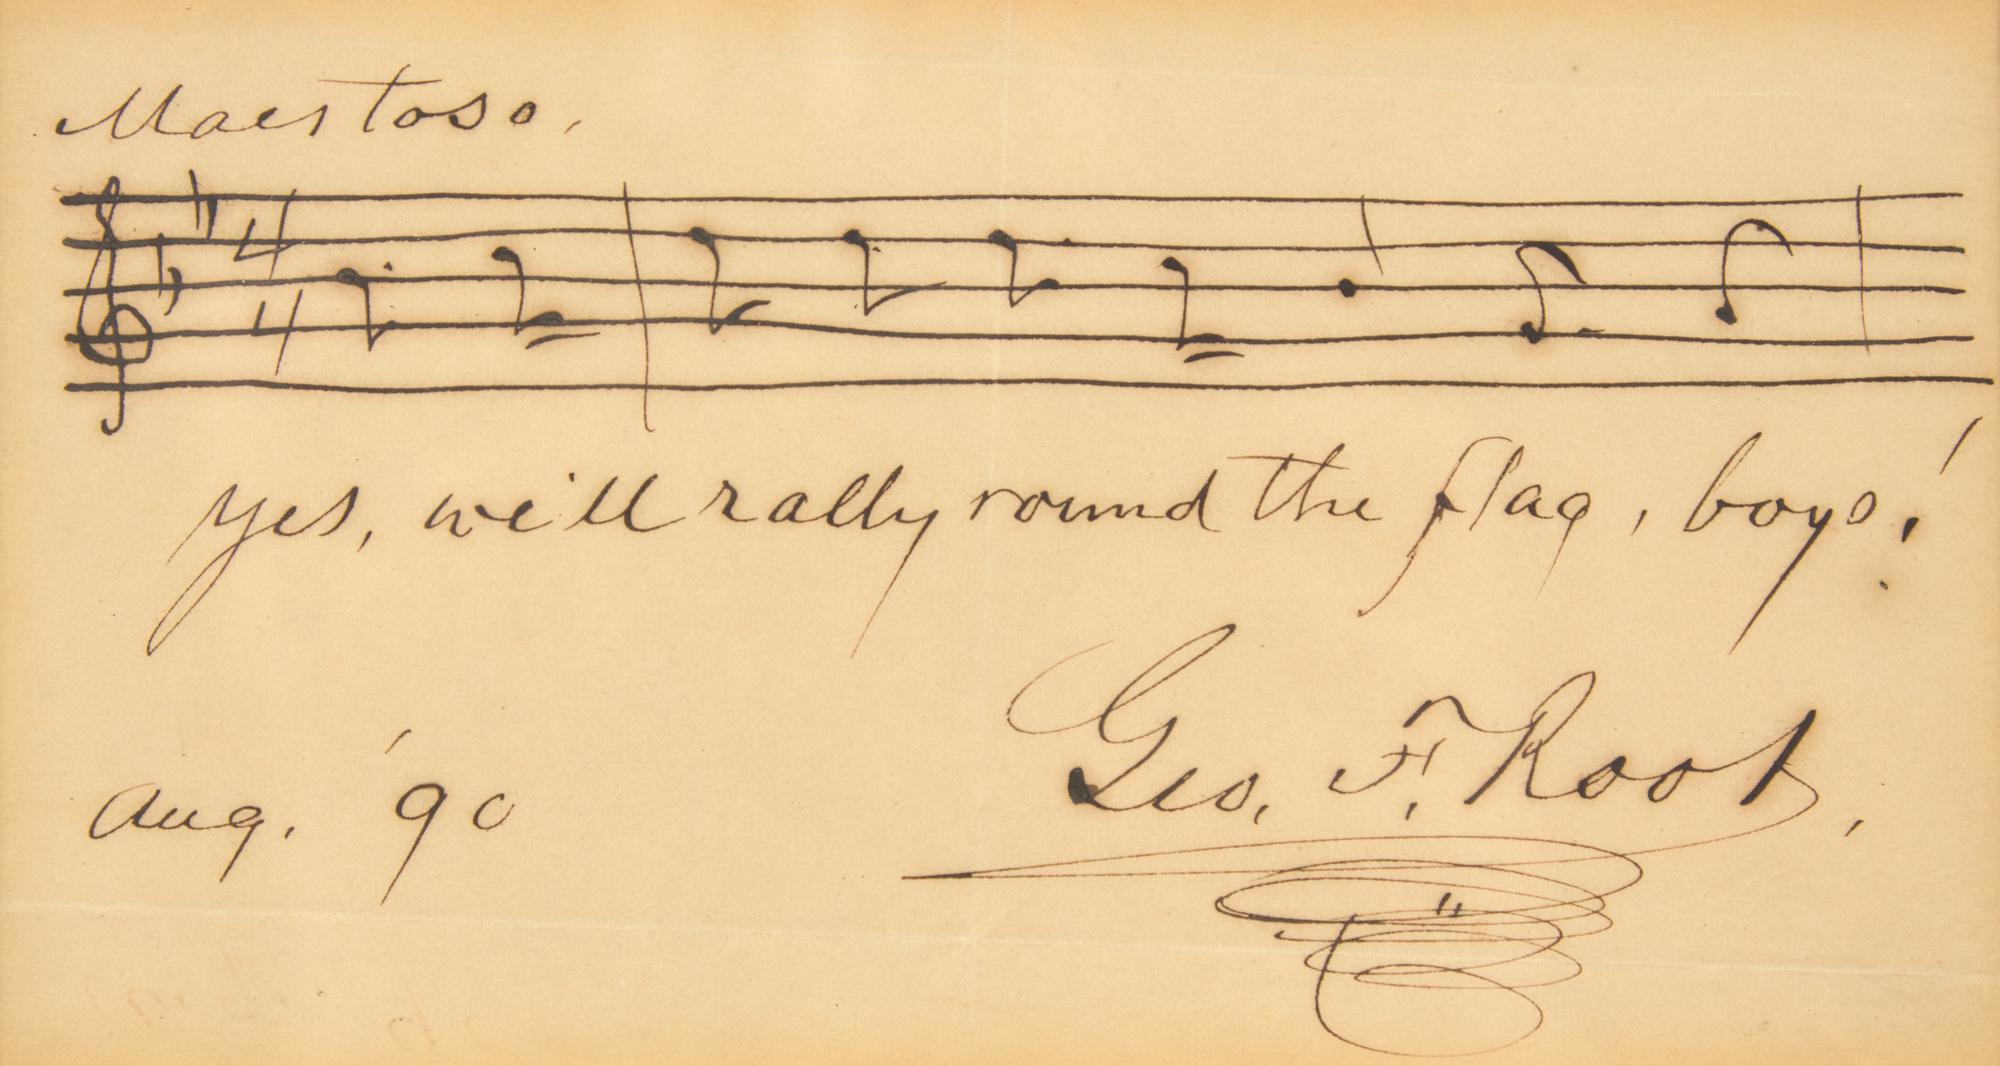 Maestoso.
4
4
yes, we'll rally round the flag, boys!
Geo. F. Root.
Aug. '90